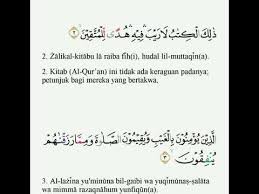 ذَٰلِكَ ٱلْكِتَٰبُ لَا رَيْبَ ۛ فِيهِ ۛ هُدًى لِّلْمُتَّقِينَ ۙ ٢
2. Żālikal-kitābu lā raiba fīh(i), hudal lil-muttaqīn(a).
2. Kitab (Al-Qur'an) ini tidak ada keraguan padanya;
petunjuk bagi mereka yang bertakwa,
الَّذِيْنَ يُؤْمِنُوْنَ بِالْغَيْبِ وَيُقِيْمُوْنَ الصَّلٰوةَ وَمِمَّا رَزَقْنٰهُمْ
يُنْفِقُوْنَ ۙ ٣
3. Al-lażīna yu'minūna bil-gaibi wa yuqīmūnaṣ-ṣalāta
wa mimmā razaqnāhum yunfiqūn(a).